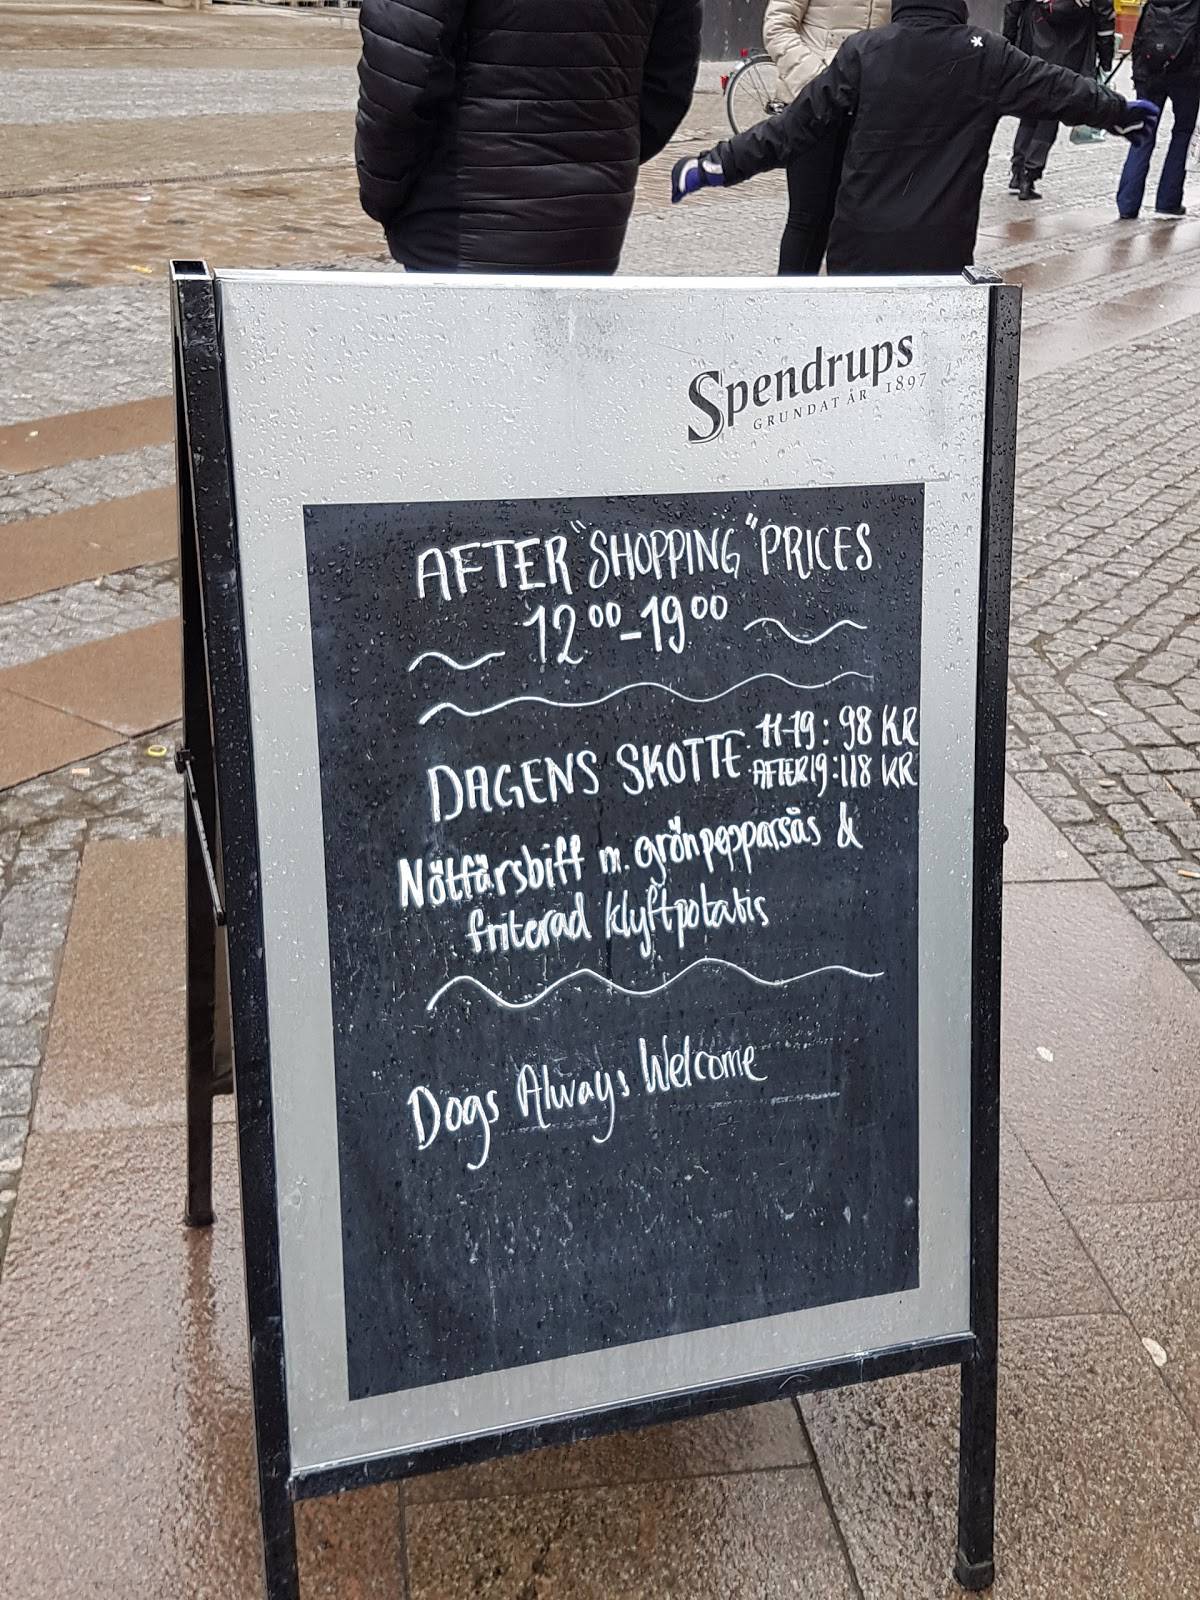 Spendrups
GRUNDAT ÅR 1897
AFTER "SHOPPING" PRICES
12⁰⁰-19⁰⁰
DAGENS SKOTTE 11-19: 98 KR
AFTER 19: 118 KR
Nötfärsbiff m. grönpepparsås &
friterad klyftpotatis
Dogs Always Welcome